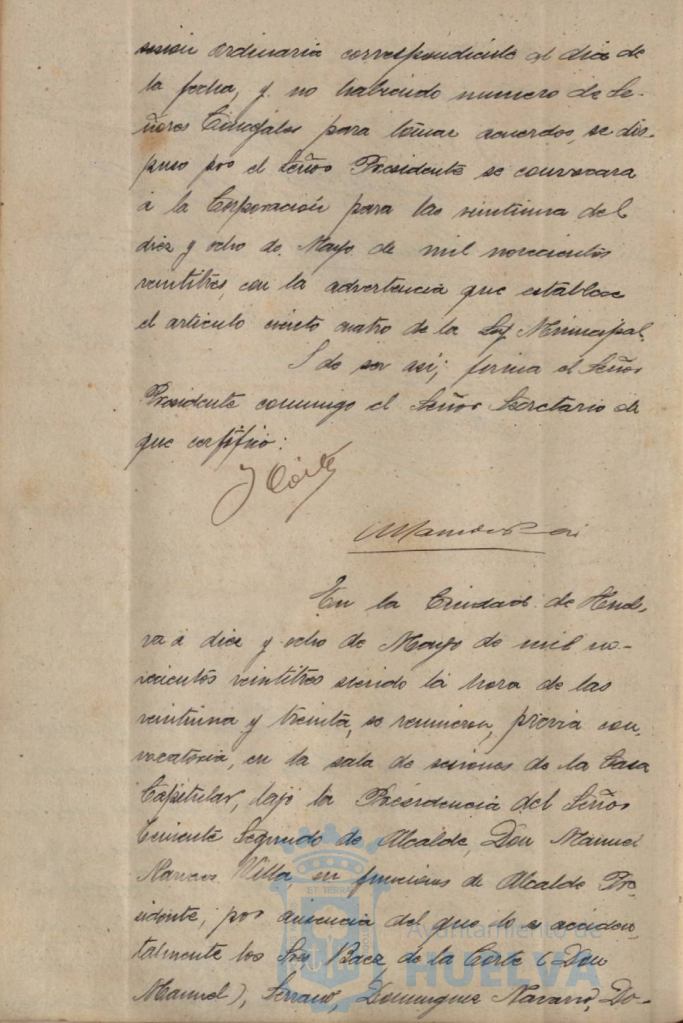 sesion ordinaria correspondiente al dia de
la fecha, y no habiendo numero de Se-
ñores Concejales para tomar acuerdos, se dis-
puso por el Señor Presidente se convocara
á la Corporación para las veintiuna del
diez y ocho de Mayo de mil novecientos
veintitres, con la advertencia que establece
el articulo ciento cuatro de la Ley Municipal.
I de ser asi; firma el Señor
Presidente conmigo el Señor Secretario de
que certifico:
En la Ciudad de Huel-
va á diez y ocho de Mayo de mil no-
vecientos veintitres siendo la hora de las
veintiuna y treinta, se reunieron, previa con-
vocatoria, en la sala de sesiones de la Casa
Capitular, bajo la Presidencia del Señor
Teniente Segundo de Alcalde, Don Manuel
en funciones de Alcalde Pre-
sidente, por ausencia del que lo es acciden-
talmente los Sres, Baez de la Corte (Don
Manuel), Serrano, Dominguez Navarro, Do-
ET TERRA
Ayuntamiento de
HUELVA